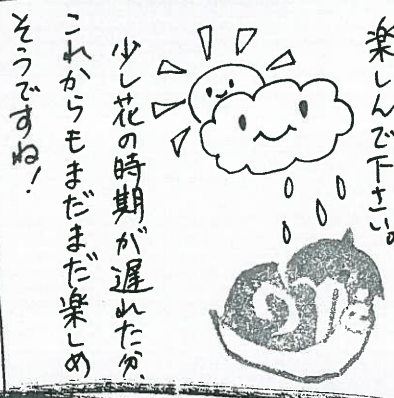 楽しんで下さい。
少し花の時期が遅れた分、
これからもまだまだ楽しめ
そうですね!